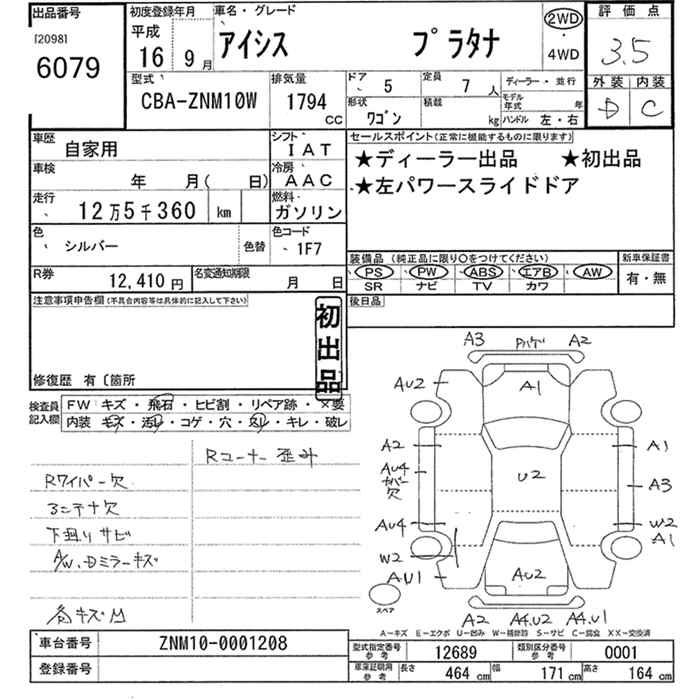 出品番号
[2098]
6079
初度登録年月
平成
16 9月
車名・グレード
アイシス プラタナ
2WD
・
4WD
評価点
3.5
外装 内装
D C
型式
CBA-ZNM10W
排気量
1794
CC
ドア 5
定員 7 人
形状 ワゴン
積載 kg
ディーラー・並行
モデル年式 年
ハンドル 左・右
車歴 自家用
シフト IAT
車検 年 月( 日)
冷房 AAC
走行 12万5千360 km
燃料 ガソリン
色 シルバー 色替
色コード 1F7
R券 12,410円
名変通知期限 月 日
セールスポイント(正常に機能するものに限ります)
★ディーラー出品 ★初出品
★左パワースライドドア
装備品(純正品に限り○をつけてください)
PS PW ABS エアB AW
SR ナビ TV カワ
新車保証書
有・無
後日品
注意事項申告欄(不具合内容等は具体的に記入して下さい)
初出品
修復歴 有〔箇所
検査員記入欄
FW キズ・飛石・ヒビ割・リペア跡・×要
内装 キズ・汚れ・コゲ・穴・スレ・キレ・破レ
Rコーナー歪み
Rワイパー欠
下回りサビ
A/W、Dミラーキズ
A3 A2
AU2
A1
A2
AU4
カバー欠
AU4
W2
AU1
U2
A1
A3
W2
A1
AU2
A2 A4.U2 A4.U1
スペア
A-キズ E-エクボ U-凹み W-補修跡 S-サビ C-腐食 XX-交換済
車台番号 ZNM10-0001208
登録番号
型式指定番号 参考 12689
類別区分番号 参考 0001
車庫証明用 参考 長さ 464 cm 幅 171 cm 高さ 164 cm